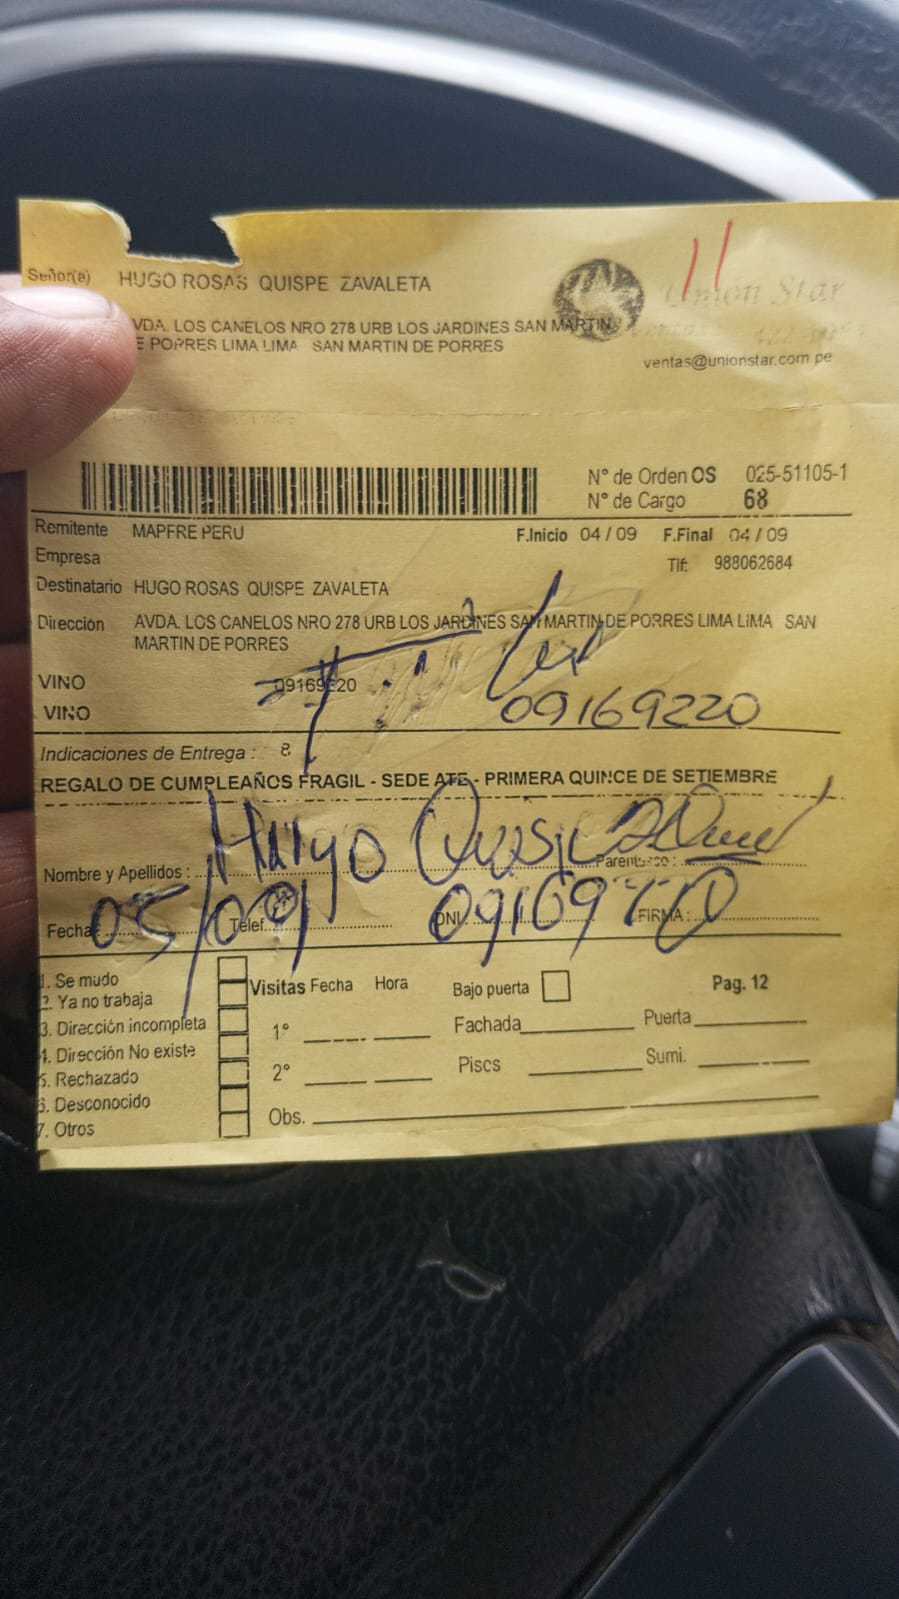 Señor(a) HUGO ROSAS QUISPE ZAVALETA
VDA. LOS CANELOS NRO 278 URB LOS JARDINES SAN MARTIN
E PORRES LIMA LIMA SAN MARTIN DE PORRES
11
Union Star
ventas@unionstar.com.pe
N° de Orden OS 025-51105-1
N° de Cargo 68
Remitente MAPFRE PERU F.Inicio 04 / 09 F.Final 04 / 09
Empresa Tlf: 988062684
Destinatario HUGO ROSAS QUISPE ZAVALETA
Dirección AVDA. LOS CANELOS NRO 278 URB LOS JARDINES SAN MARTIN DE PORRES LIMA LIMA SAN
MARTIN DE PORRES
VINO 09169220
VINO 09169220
Indicaciones de Entrega : 8
REGALO DE CUMPLEAÑOS FRAGIL - SEDE ATE - PRIMERA QUINCE DE SETIEMBRE
Nombre y Apellidos : Hugo Parentesco :
Fecha: 05/09 Telef DNI FIRMA :
1. Se mudo
2. Ya no trabaja
3. Dirección incompleta
4. Dirección No existe
5. Rechazado
6. Desconocido
7. Otros
Visitas Fecha Hora Bajo puerta Pag. 12
1° Fachada Puerta
2° Piscs Sumi.
Obs.